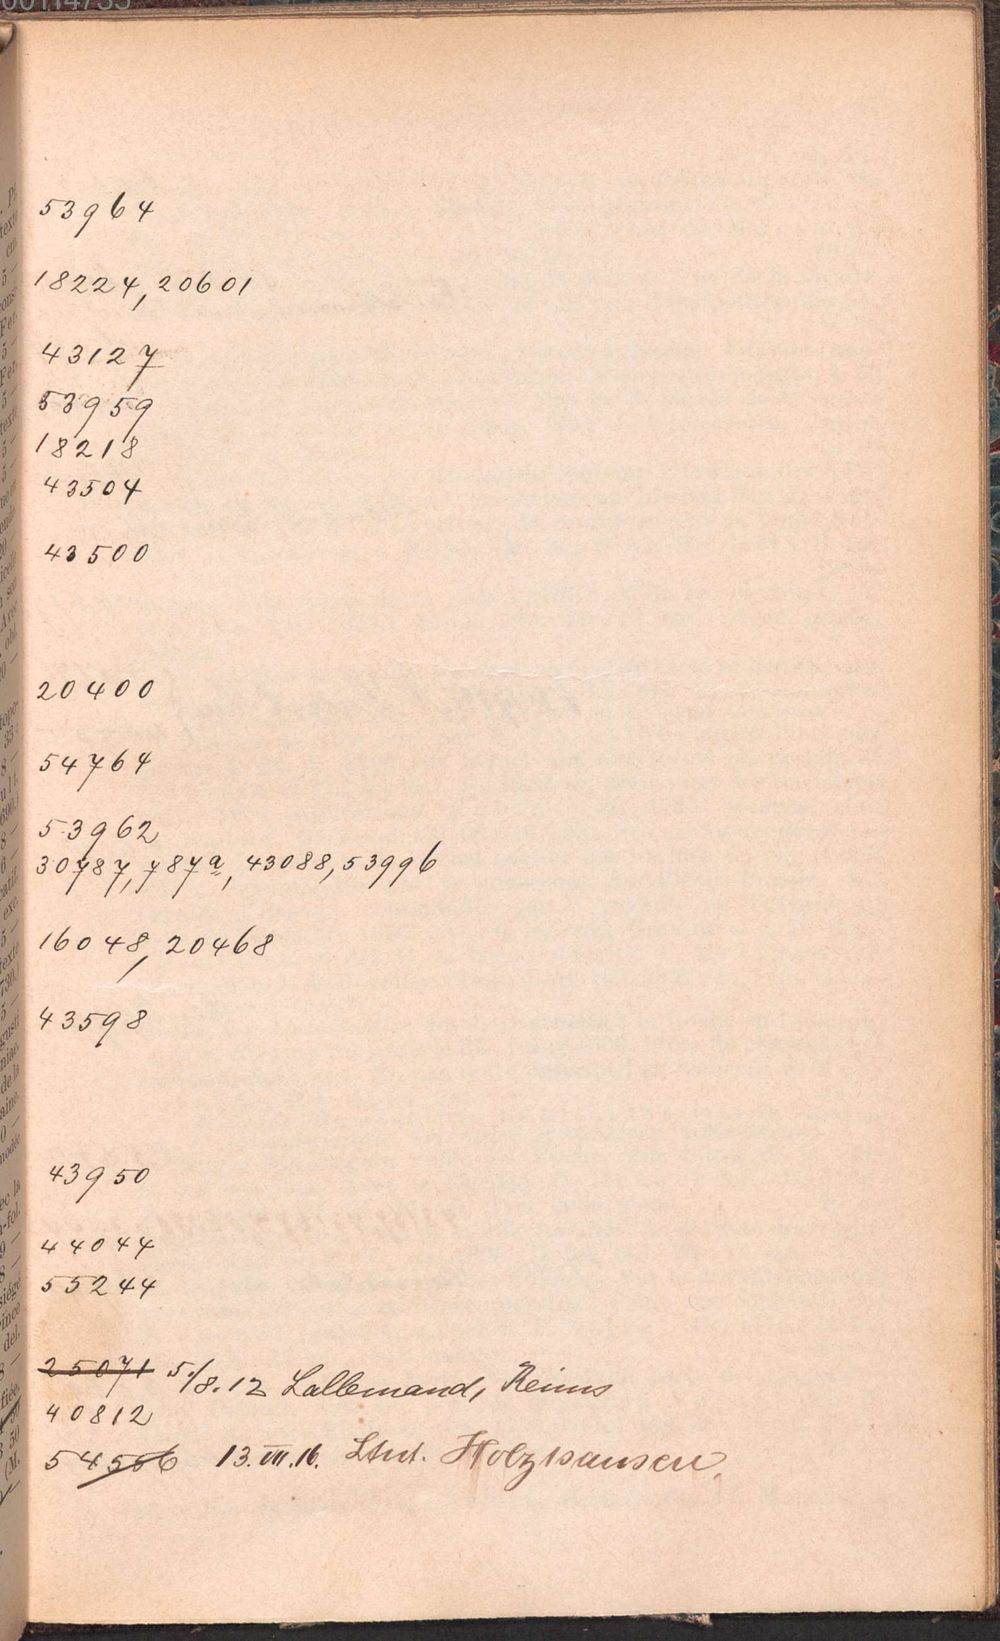 53964
18224, 20601
43127
53959
18218
43504
43500
20400
54764
53962
30787, 787a, 43088, 53996
16048, 20468
43598
43950
44044
55244
25071 5./8.12 Lallemand, Reims
40812
54556 13.VII.16. Ltnt. Holzhausen.